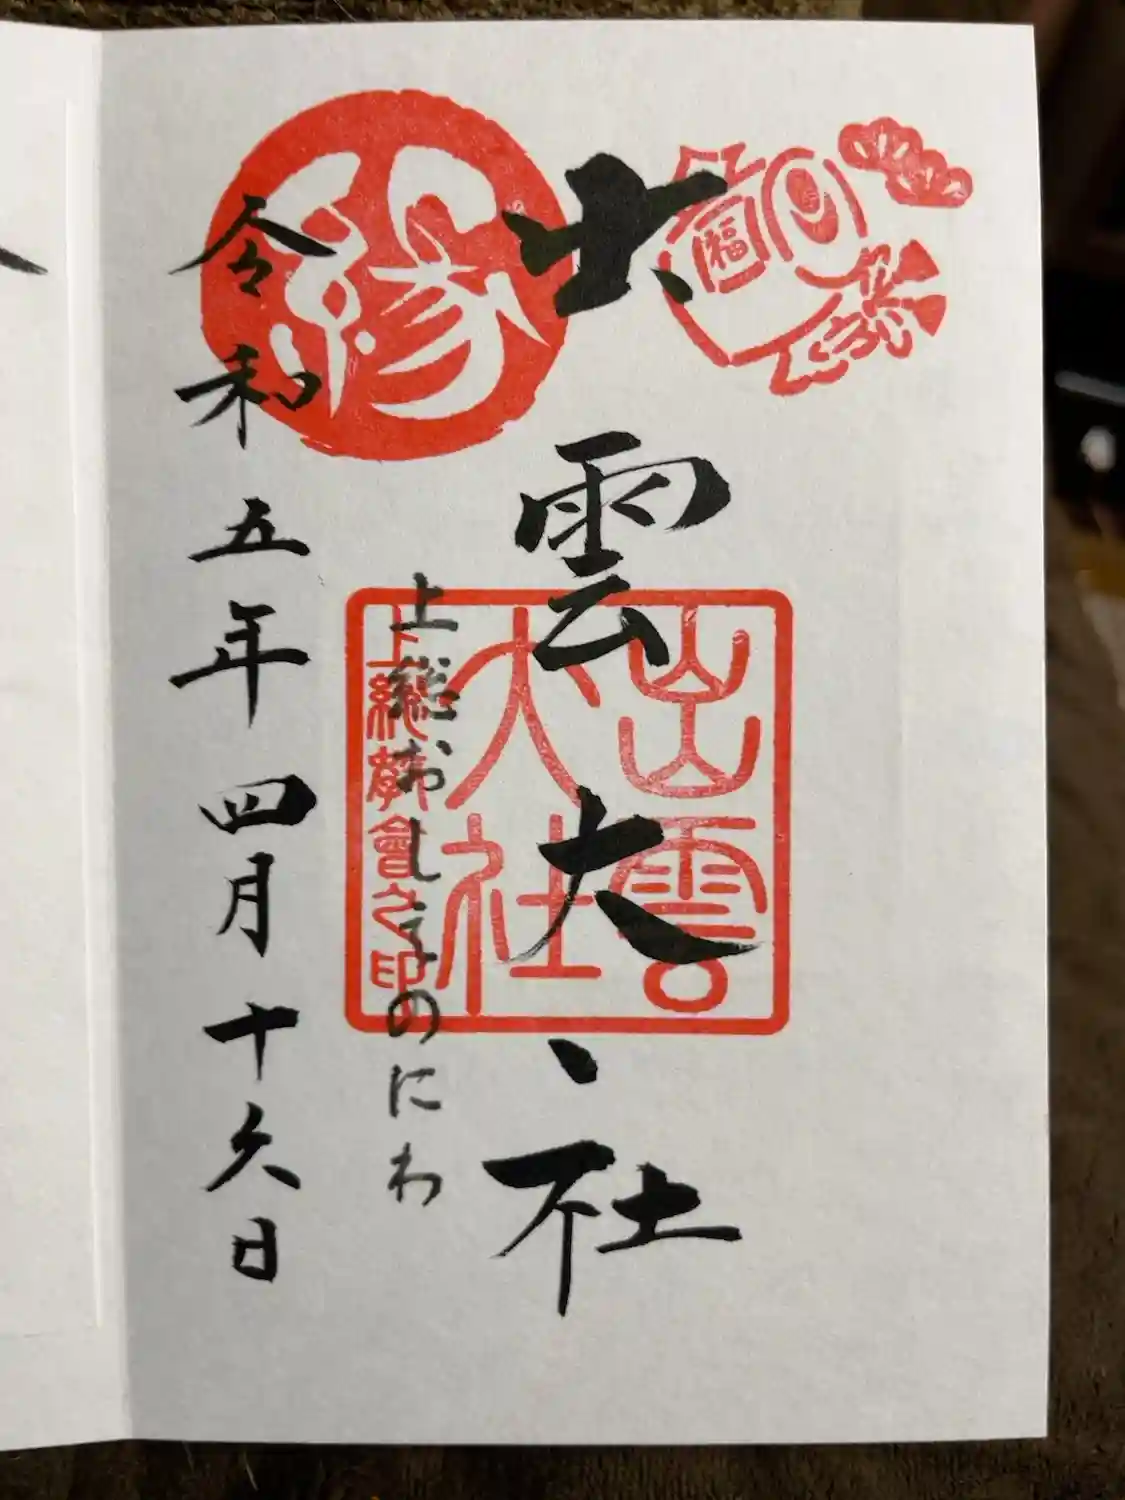 福
出雲大社
出雲
大社
上総教會之印
上総おしょうのにわ
縁
令和五年四月十九日